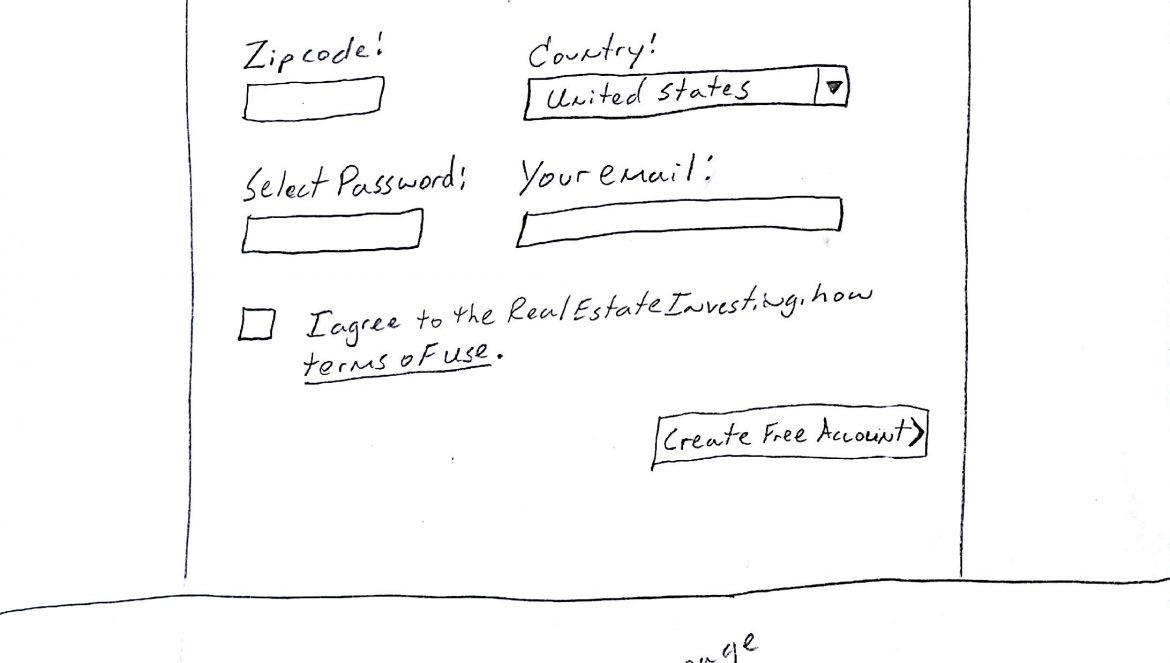 Zipcode: Country:
United States
Select Password: Your email:
I agree to the RealEstateInvesting.how
terms of use.
Create Free Account >